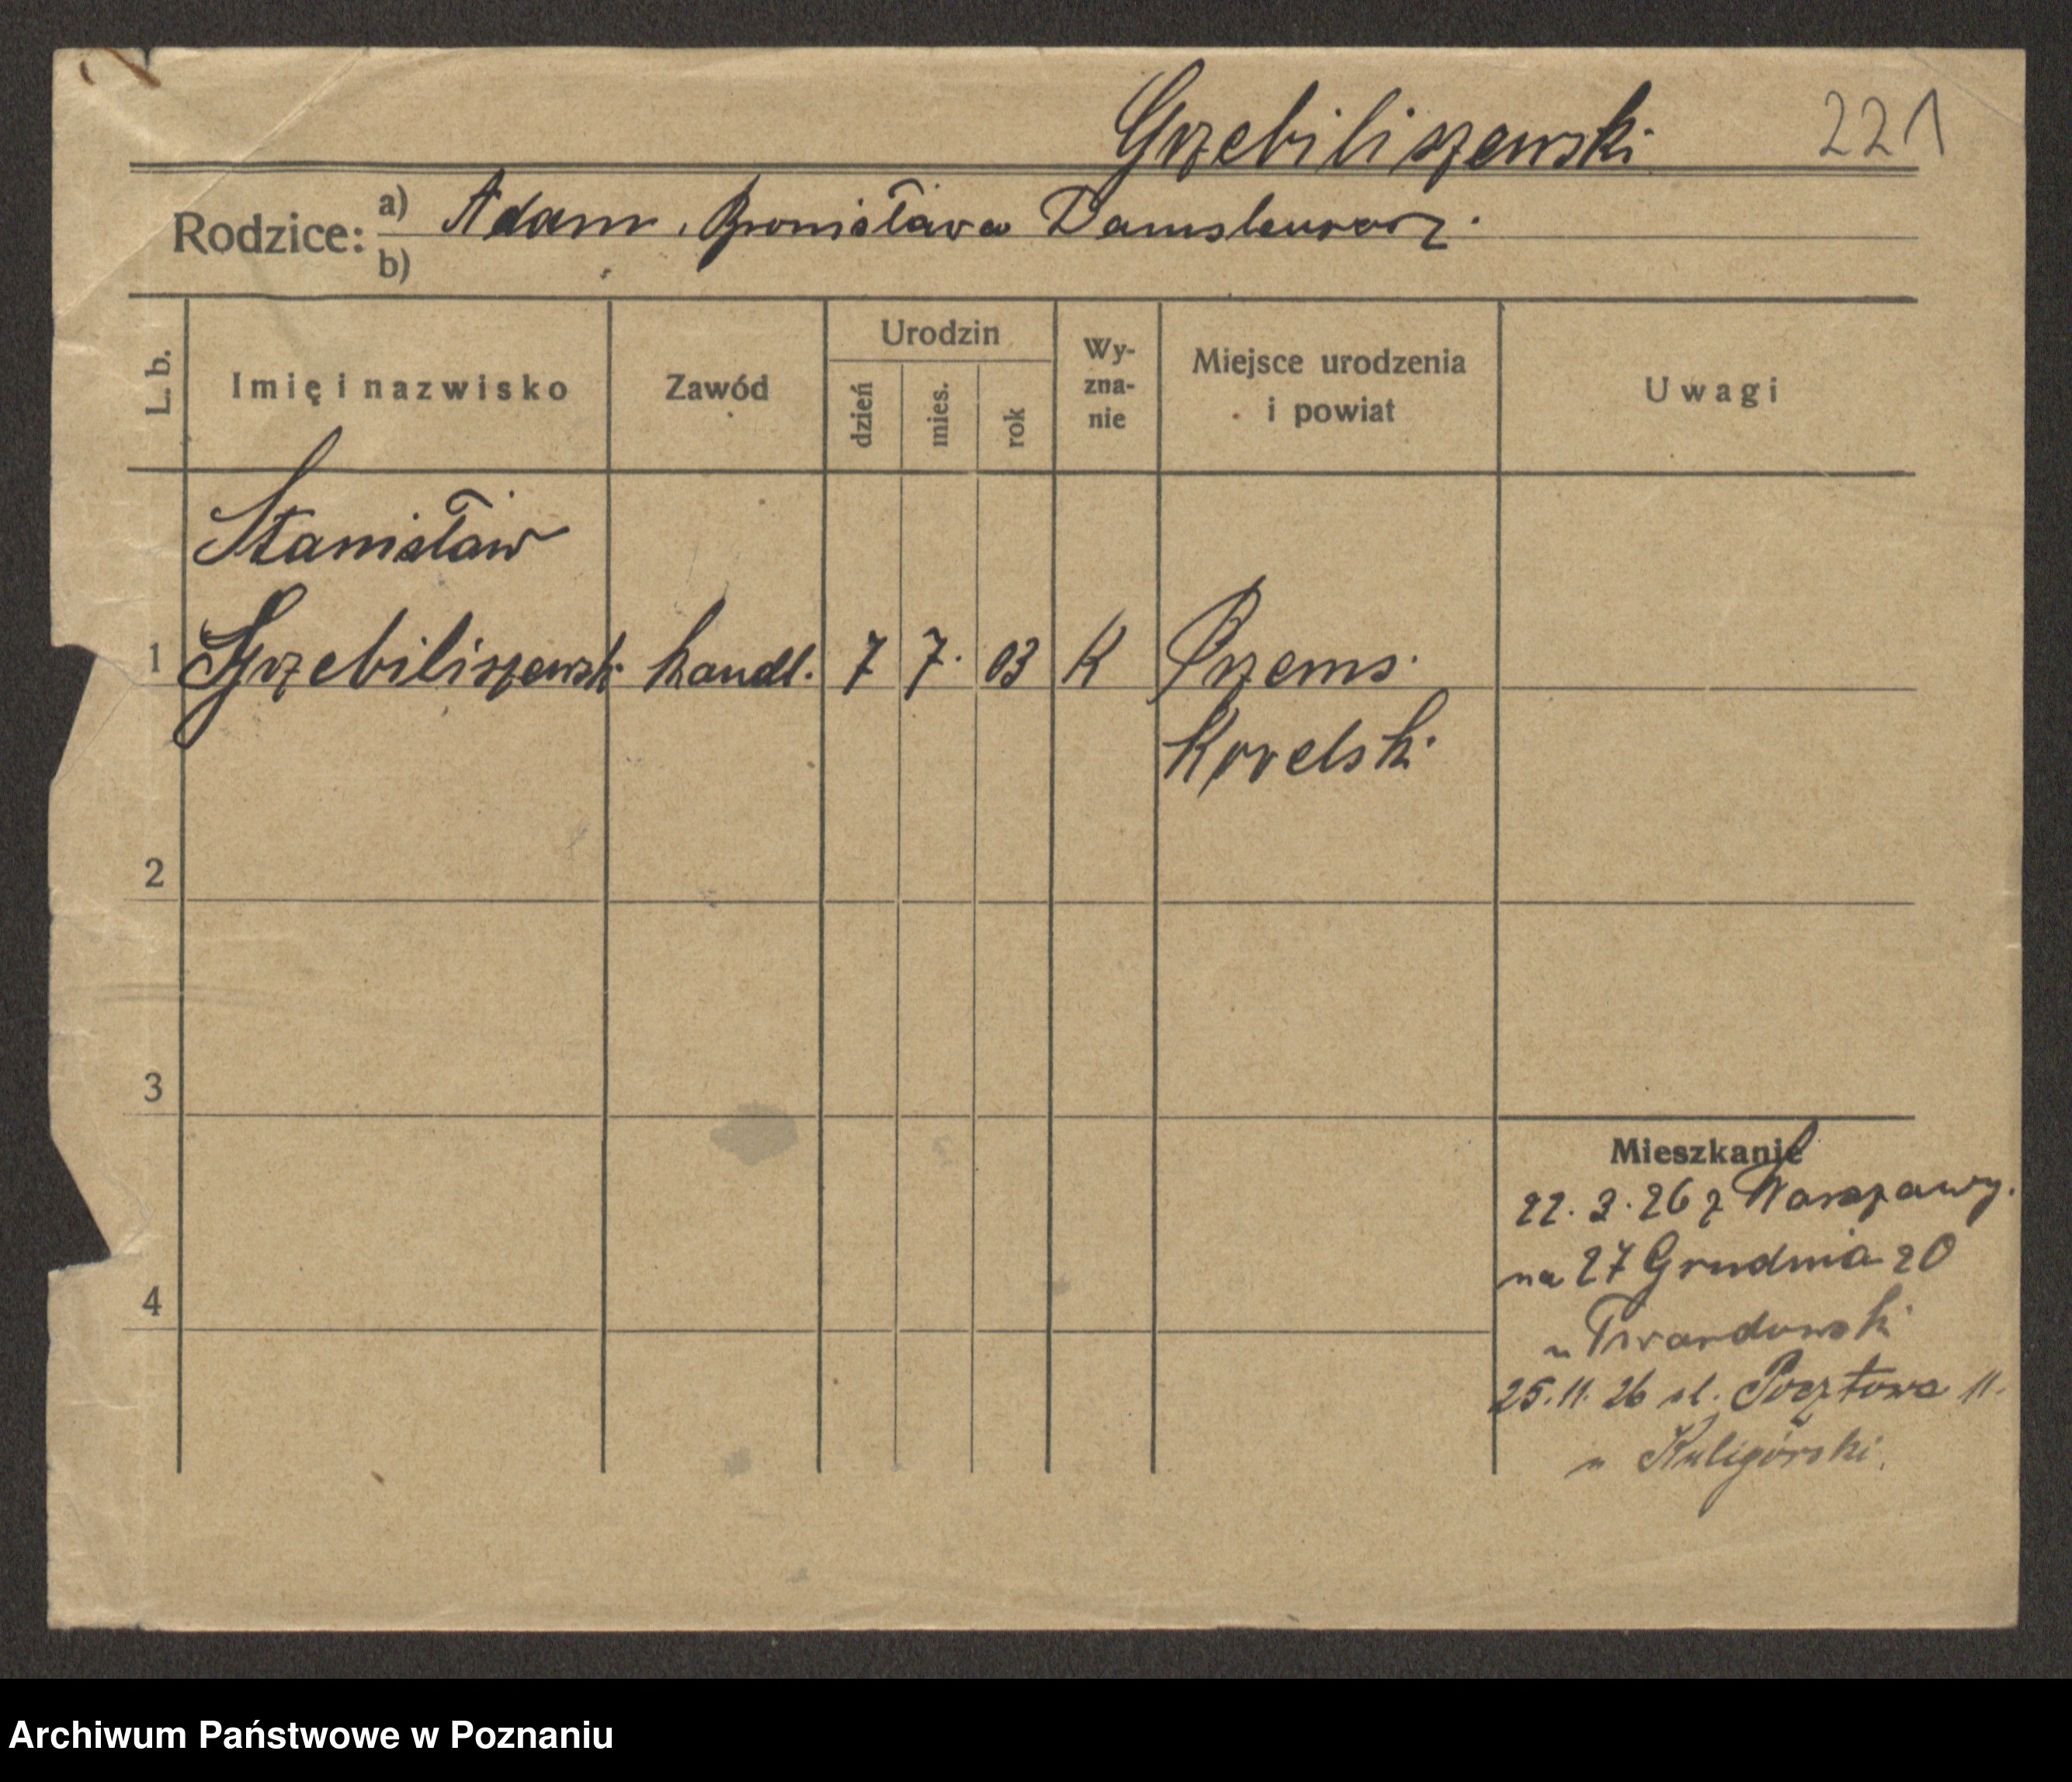 Grzebiliszewski 221
Rodzice: a) Adam, Bronisława
b)
L. b. Imię i nazwisko Zawód Urodzin dzień mies. rok Wy-zna-nie Miejsce urodzenia i powiat Uwagi
Stanisław
1 Grzebiliszewski handl. 7 7. 03 K Przems.
2
3
4
Mieszkanie
22. 3. 26 z Warszawy.
na 27 Grudnia 20
u Twardowski
25. 11. 26 ul. Pocztowa 11.
u Kuligórski.
Archiwum Państwowe w Poznaniu